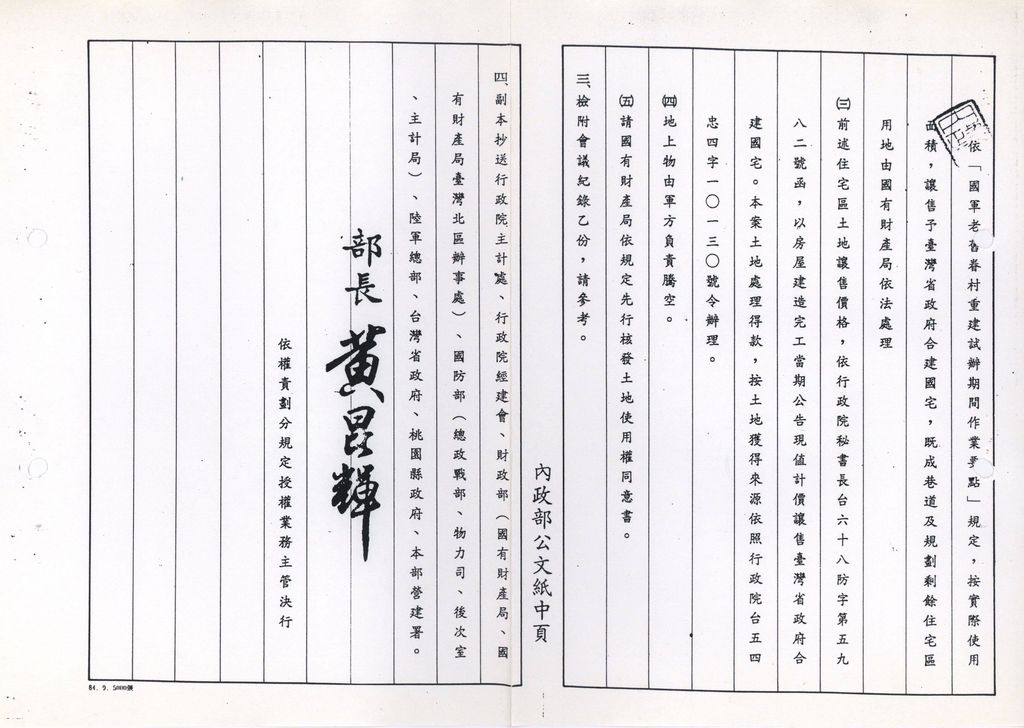 依「國軍老舊眷村重建試辦期間作業要點」規定，按實際使用
面積，讓售予臺灣省政府合建國宅，既成巷道及規劃剩餘住宅區
用地由國有財產局依法處理
㈢前述住宅區土地讓售價格，依行政院秘書長台六十八防字第五九
八二號函，以房屋建造完工當期公告現值計價讓售臺灣省政府合
建國宅。本案土地處理得款，按土地獲得來源依照行政院台五四
忠四字一〇一三〇號令辦理。
㈣地上物由軍方負責騰空。
㈤請國有財產局依規定先行核發土地使用權同意書。
三、檢附會議紀錄乙份，請參考。
內政部公文紙中頁
四、副本抄送行政院主計處、行政院經建會、財政部（國有財產局、國
有財產局臺灣北區辦事處）、國防部（總政戰部、物力司、後次室
、主計局）、陸軍總部、台灣省政府、桃園縣政府、本部營建署。
部長 黃昆輝
依權責劃分規定授權業務主管決行
84. 9. 5000張